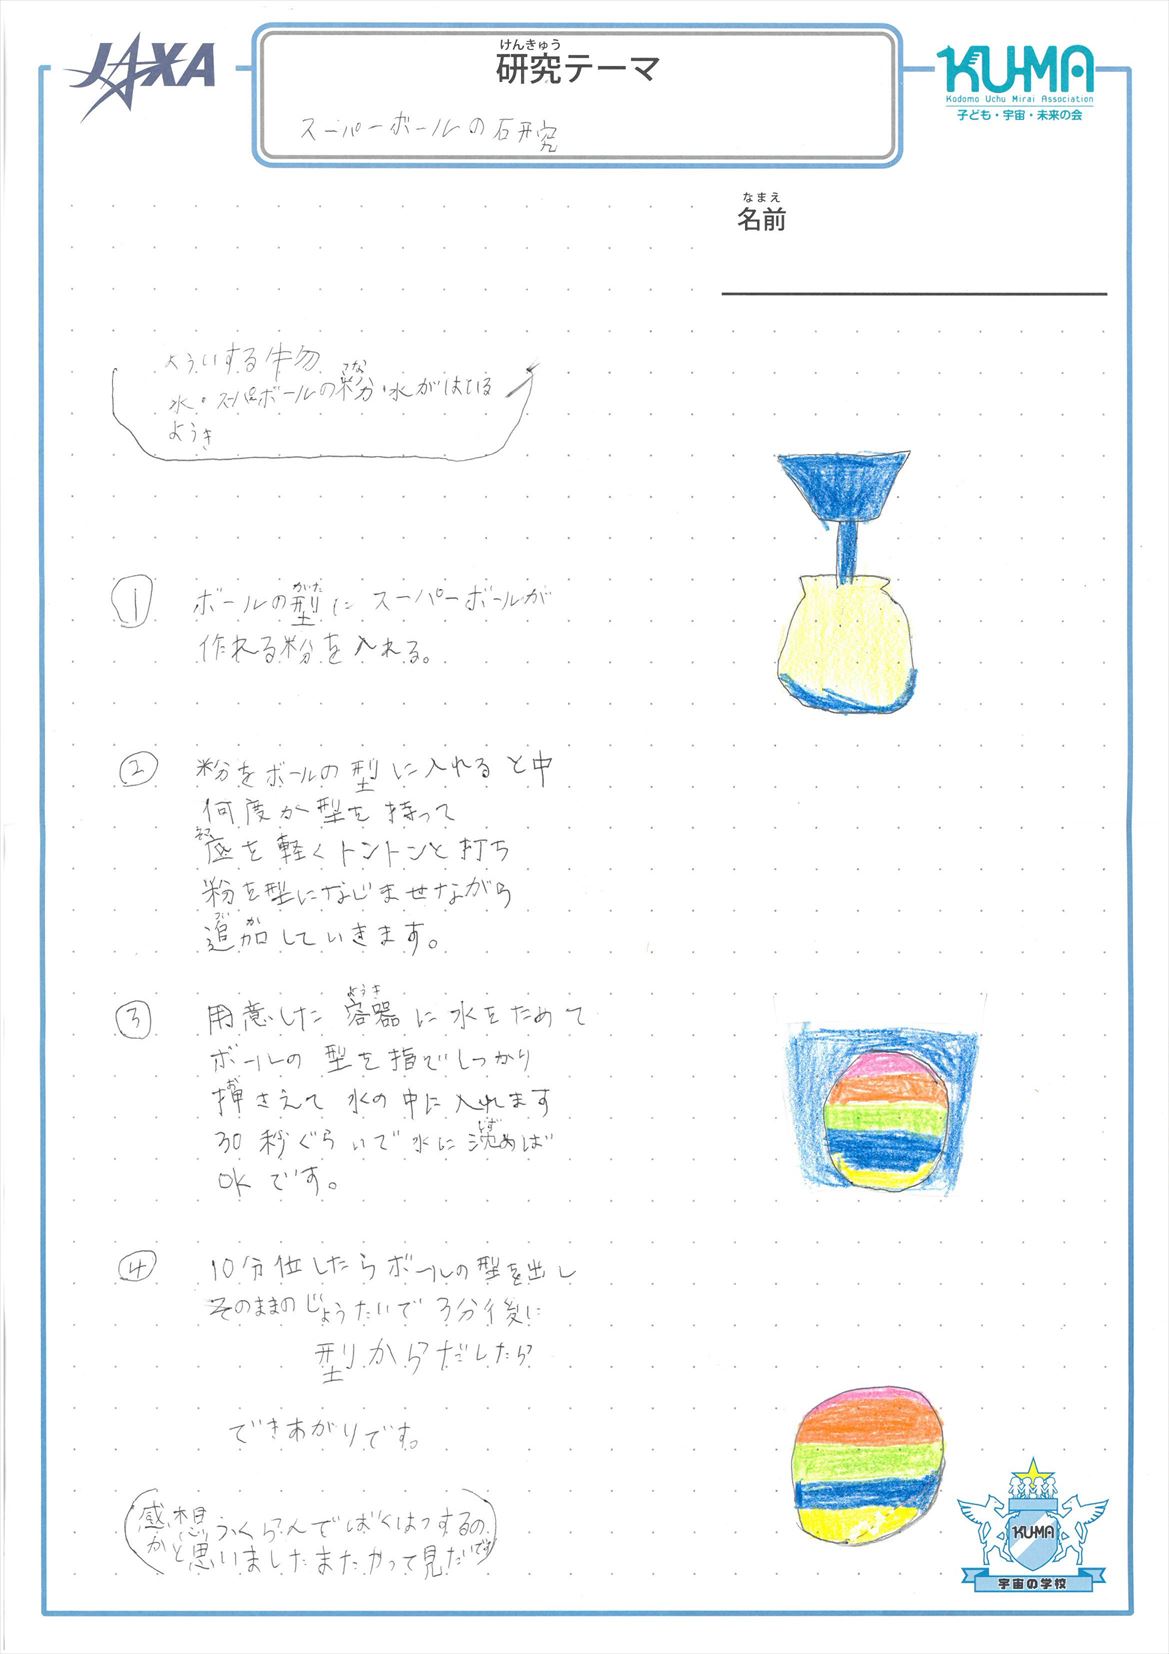 JAXA
けんきゅう
研究テーマ
スーパーボールの研究
KU-MA
Kodomo Uchu Mirai Association
子ども・宇宙・未来の会
なまえ
名前
よういする物
こな
水・スーパーボールの粉・水がはいる
ようき
① ボールの型にスーパーボールが
がた
作れる粉を入れる。
② 粉をボールの型に入れると中
何度か型を持って
そこ
底を軽くトントンと打ち
粉を型になじませながら
ついか
追加していきます。
ようき
③ 用意した容器に水をためて
ボールの型を指でしっかり
お
押さえて水の中に入れます
しず
30秒ぐらいで水に沈めば
OKです。
④ 10分位したらボールの型を出し
そのままのじょうたいで3分後に
型からだしたら
できあがりです。
感想 ふくらんでばくはつするの
かと思いましたまたかって見たいです
KU-MA
宇宙の学校